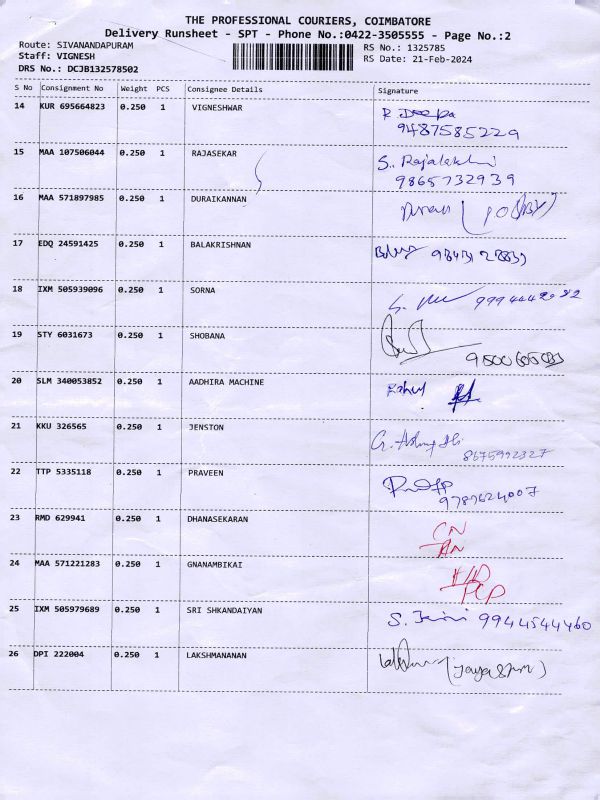 THE PROFESSIONAL COURIERS, COIMBATORE
Delivery Runsheet - SPT - Phone No.:0422-3505555 - Page No.:2
Route: SIVANANDAPURAM RS No.: 1325785
Staff: VIGNESH RS Date: 21-Feb-2024
DRS No.: DCJB132578502
S No Consignment No Weight PCS Consignee Details Signature
14 KUR 695664823 0.250 1 VIGNESHWAR R. Deepa
9487585229
15 MAA 107506044 0.250 1 RAJASEKAR S.. Rajalakshmi
9865732939
16 MAA 571897985 0.250 1 DURAIKANNAN
17 EDQ 24591425 0.250 1 BALAKRISHNAN
18 IXM 505939096 0.250 1 SORNA
19 STY 6031673 0.250 1 SHOBANA
20 SLM 340053852 0.250 1 AADHIRA MACHINE
21 KKU 326565 0.250 1 JENSTON
8675992327
22 TTP 5335118 0.250 1 PRAVEEN
9789624007
23 RMD 629941 0.250 1 DHANASEKARAN CN
24 MAA 571221283 0.250 1 GNANAMBIKAI
25 IXM 505979689 0.250 1 SRI SHKANDAIYAN 9944544460
26 DPI 222004 0.250 1 LAKSHMANANAN